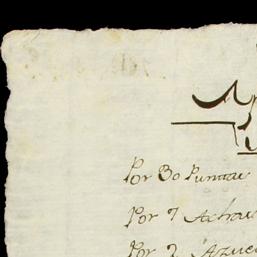 Ap
Por 30 Puntas
Por 7 Achas
Por 2 Azue